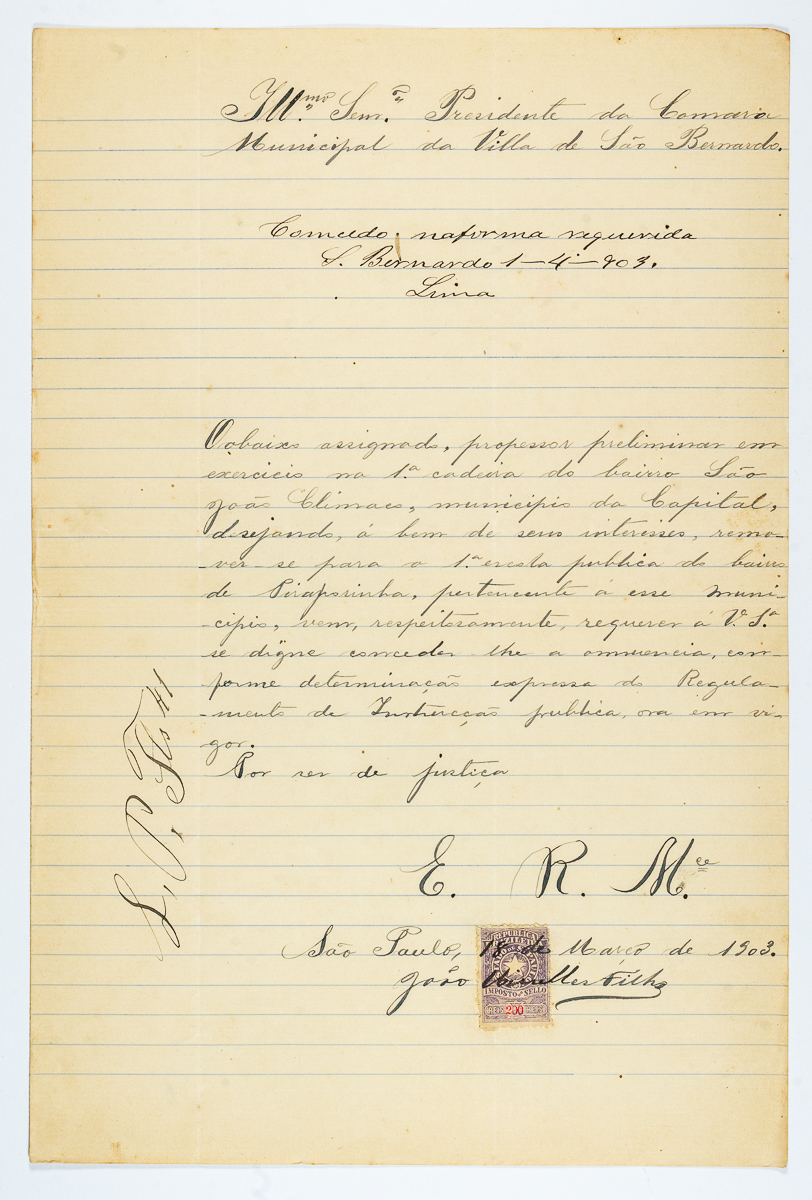 Illmo. Senr. Presidente da Camara
Municipal da Villa de São Bernardo.
Concedo naforma requerida
S. Bernardo 1-4-903.
Lima
O abaixo assignado, professor preliminar em
exercicio na 1.ª cadeira do bairro São
João Climaco, municipio da Capital,
desejando, á bem de seus interesses, remo-
-ver-se para a 1.ª escola publica do bairro
de Piraporinha, pertencente á esse muni-
-cipio, vem, respeitosamente, requerer á V. S.ª
se digne conceder-lhe a annuencia, con-
forme determinação expressa do Regula-
-mento da Instrucção publica, ora em vi-
gor.
Por ser de justiça
E. R. M.ce
São Paulo, 18 de Março de 1903.
João Filho
REPUBLICA
IMPOSTO DO SELLO
REIS 200 REIS
L. P. Fls 41